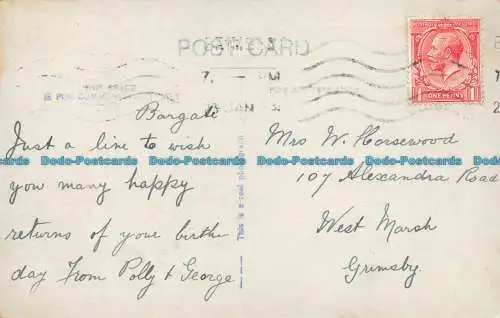 POST CARD
THIS SPACE
JAN
POSTAGE & REVENUE
ONE PENNY
Bargate
Just a line to wish
you many happy
returns of your birth
day From Polly & George
This is a real photograph
Mrs W. Horsewood
107 Alexandra Road
West Marsh
Grimsby.
Dodo-Postcards Dodo-Postcards Dodo-Postcards Dodo-Postcards Dodo-Postcards